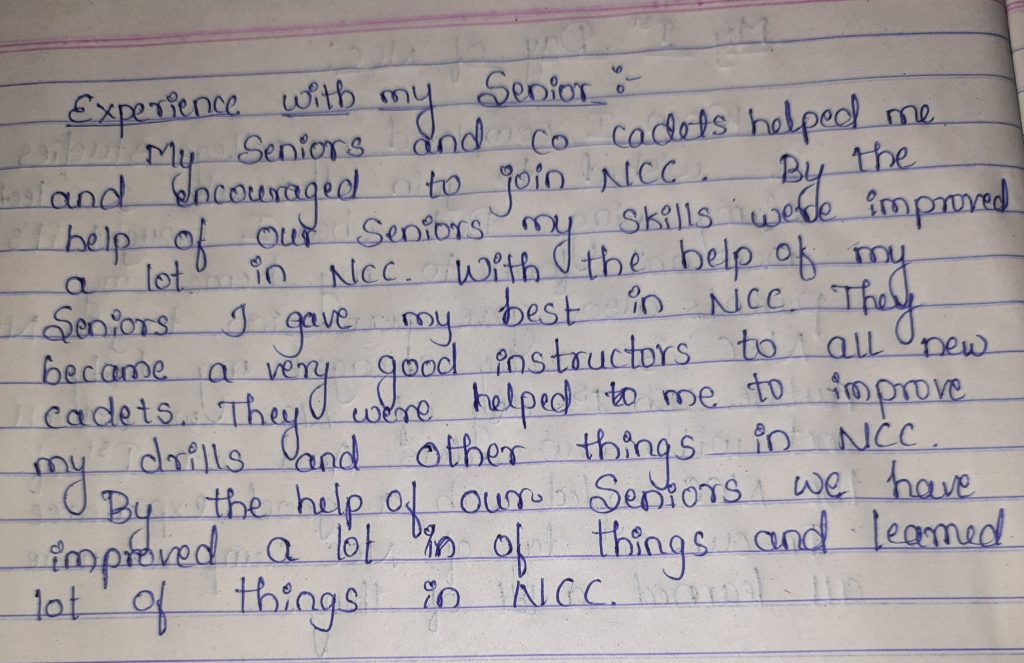 Experience with my Senior :-
My Seniors and co cadets helped me
and encouraged to join NCC. By the
help of our Seniors my skills were improved
a lot in NCC. With the help of my
Seniors I gave my best in NCC. They
became a very good instructors to all new
cadets. They were helped to me to improve
my drills and other things in NCC.
By the help of our Seniors we have
improved a lot in of things and learned
lot of things in NCC.